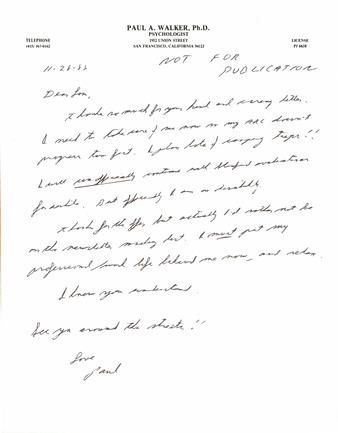 PAUL A. WALKER, Ph.D.
PSYCHOLOGIST
TELEPHONE 1952 UNION STREET LICENSE
(415) 567-0162 SAN FRANCISCO, CALIFORNIA 94123 PF 6638
11-28-88
NOT FOR
PUBLICATION
Dear Lou,
Thanks so much for your kind and caring letter.
I need to take care of me now so my ARC doesn't
progress too fast. I plan lots of camping trips!!
I will unofficially continue with evaluations
for awhile. But officially I am on disability.
Thanks for the offer, but actually I'd rather not be
on the newsletter mailing list. I must put my
professional work life behind me now, and relax.
I know you understand.
See you around the streets!!
Love
Paul